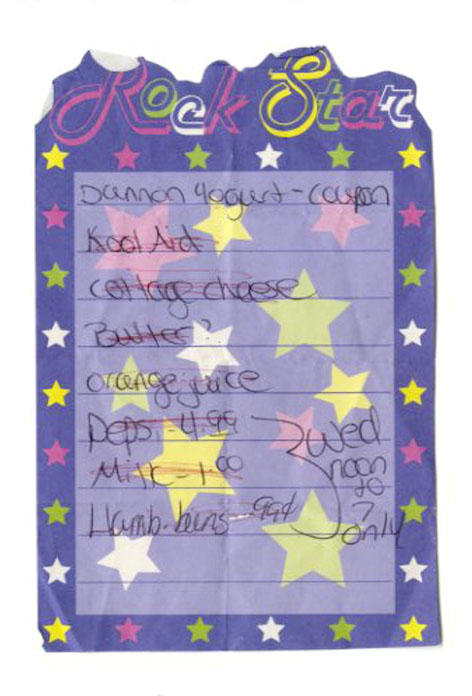 Rock Star
Dannon Yogurt - coupon
Kool Aid
Cottage cheese
Butter?
orange juice
Pepsi - 4.99
Milk - 1.00
Hamb. buns - 99¢
Wed
noon
to
7
only